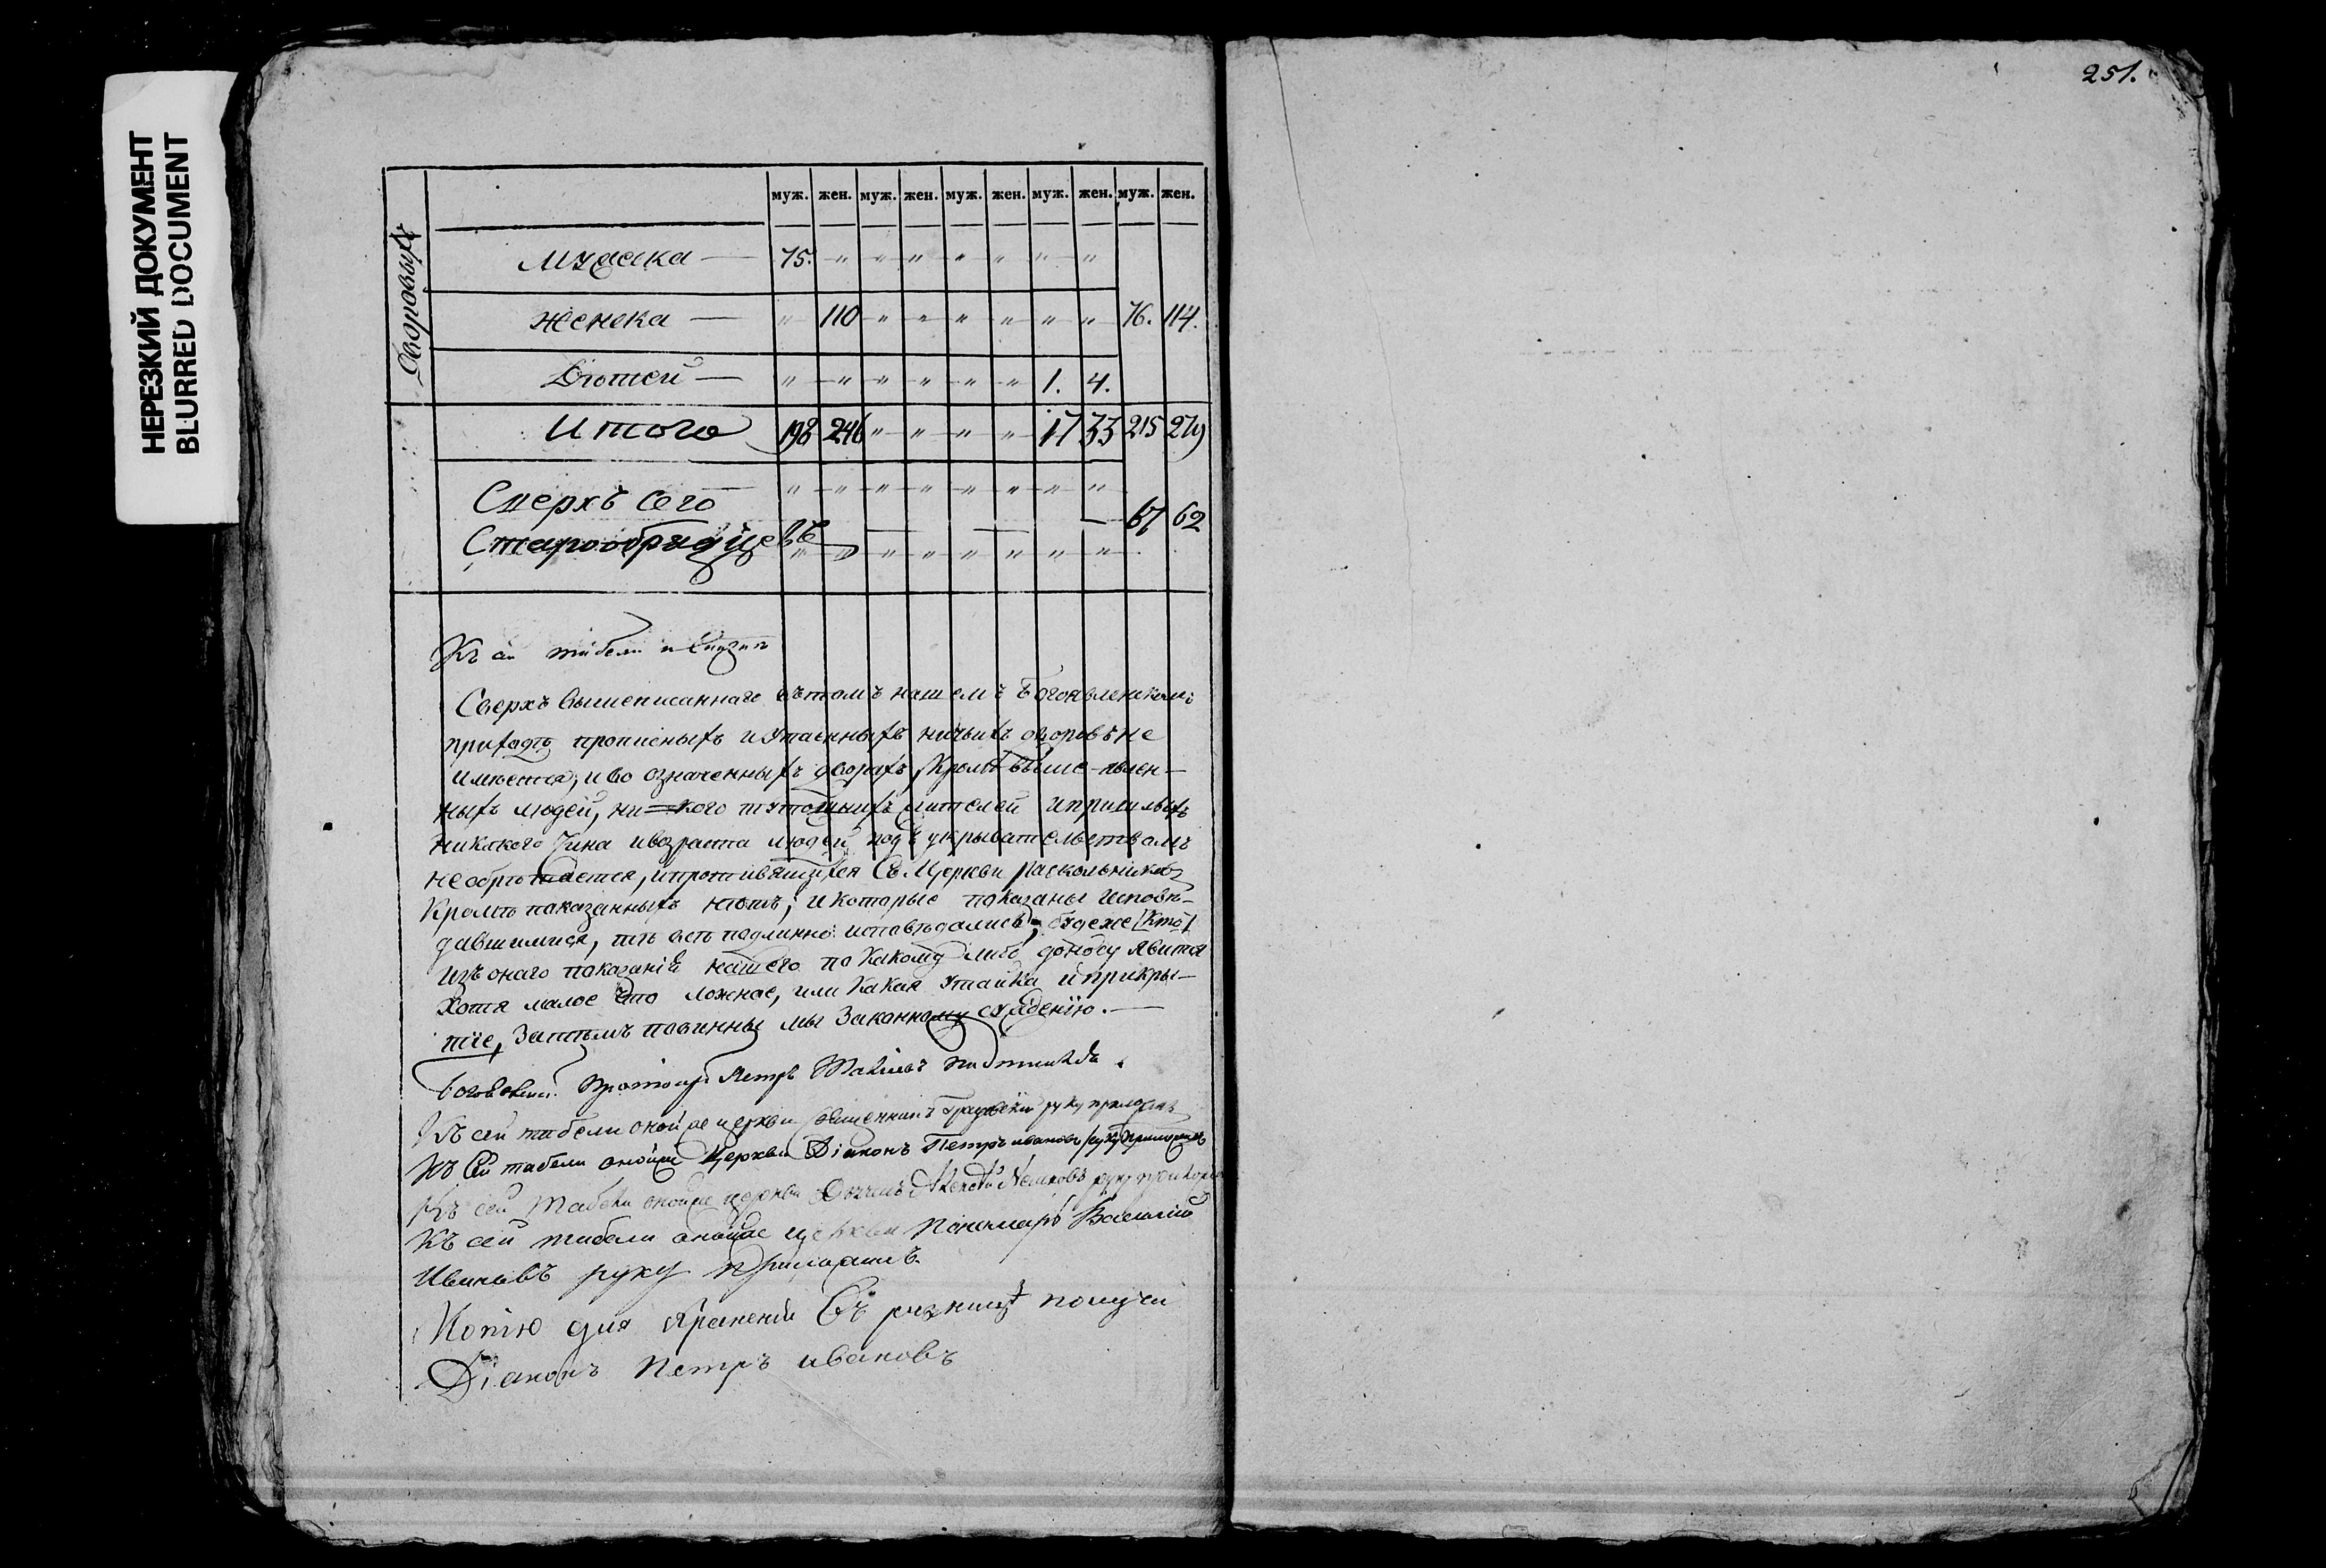 НЕРЕЗКИЙ ДОКУМЕНТ
BLURRED DOCUMENT
251.
муж. жен. муж. жен. муж. жен. муж. жен. муж. жен.
Дворовыхъ
Мужска — 75. " " " " " " "
Женска — " 110 " " " " " " 76. 114.
Дѣтей — " " " " " " 1. 4.
Итого 198 246 " " " " 17 33 215 279
Сверхъ сего " " " " " " " "
Старообрядцевъ " " " " " " " " 67 62
Къ сей табели и
Сверхъ вышеписаннаго въ томъ нашемъ Богоявленскомъ
приходѣ прописныхъ и утаенныхъ ничьихъ дворовъ не
имѣется, и во означенныхъ дворахъ, кромѣ выше-явлен-
ныхъ людей, ни=кого тутошнихъ жителей и пришлыхъ
никакого чина и возраста людей подъ укрывательствомъ
не обрѣтается, и противящихся Св. Церкви раскольниковъ
Кромѣ показанныхъ нѣтъ; и которые показаны исповѣ-
давшимися, тѣ всѣ подлинно исповѣдались; буде же [кто]
изъ онаго показанія нашего по какому либо доносу явится
Хотя малое что ложное, или какая утайка и прикры-
тіе, За тѣмъ повинны мы Законному сужденію. —
Протоіерей Петръ
Къ сей табели оной же церкви священникъ руку приложилъ
Къ сей табели оной же Церкви Діаконъ Петръ ивановъ руку приложилъ
Къ сей табели оной же церкви Дьячекъ Алексѣй руку приложилъ
Къ сей табели оной же церкви Пономарь Василій
Ивановъ руку приложилъ.
Копію для храненія въ ризницѣ получи
Діаконъ Петръ ивановъ